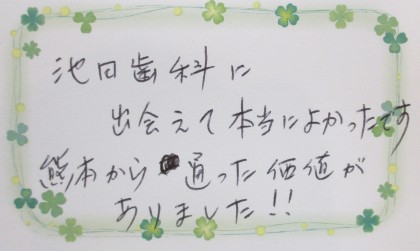 池田歯科に
出会えて本当によかったです
熊本から通った価値が
ありました!!